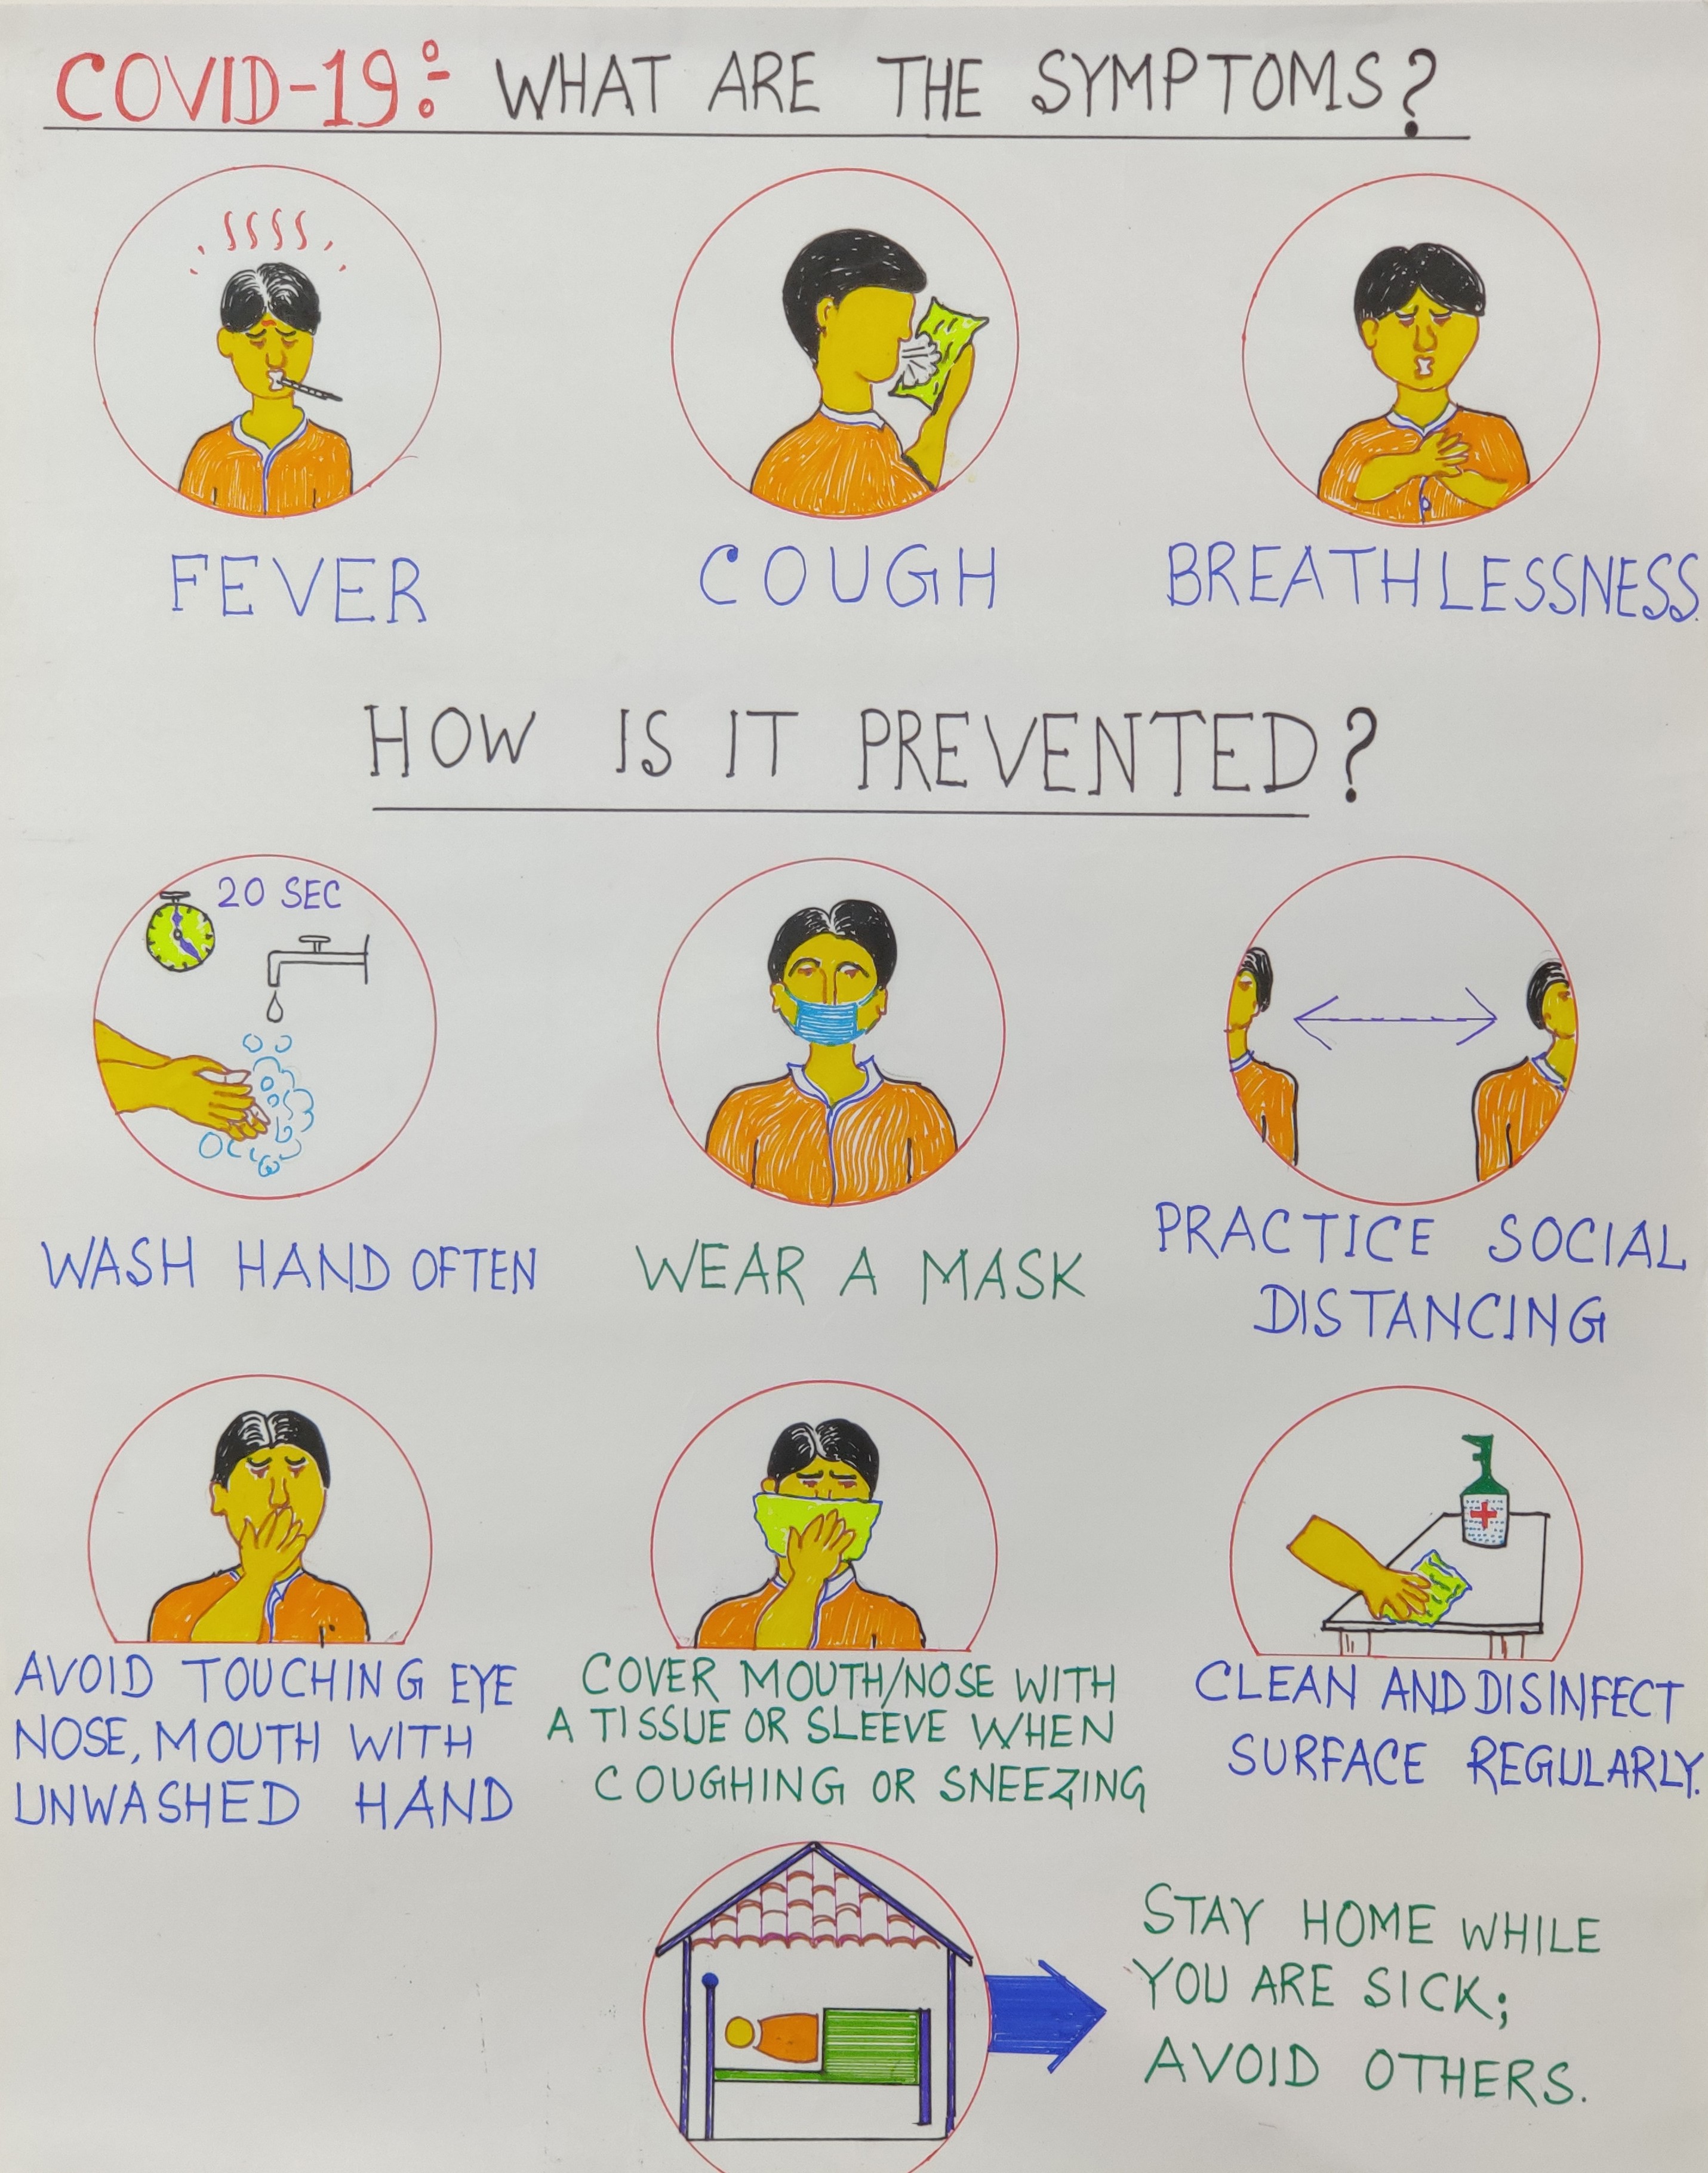 COVID-19: WHAT ARE THE SYMPTOMS?
FEVER
COUGH
BREATHLESSNESS.
HOW IS IT PREVENTED?
20 SEC
WASH HAND OFTEN
WEAR A MASK
PRACTICE SOCIAL
DISTANCING
AVOID TOUCHING EYE
NOSE, MOUTH WITH
UNWASHED HAND
COVER MOUTH/NOSE WITH
A TISSUE OR SLEEVE WHEN
COUGHING OR SNEEZING
CLEAN AND DISINFECT
SURFACE REGULARLY.
STAY HOME WHILE
YOU ARE SICK;
AVOID OTHERS.